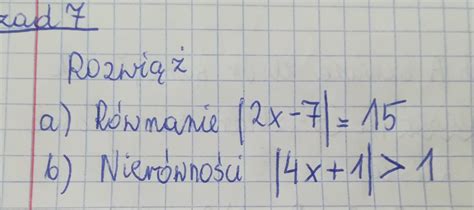 zad 7
Rozwiąż
a) Równanie |2x-7| = 15
b) Nierówności |4x+1| > 1